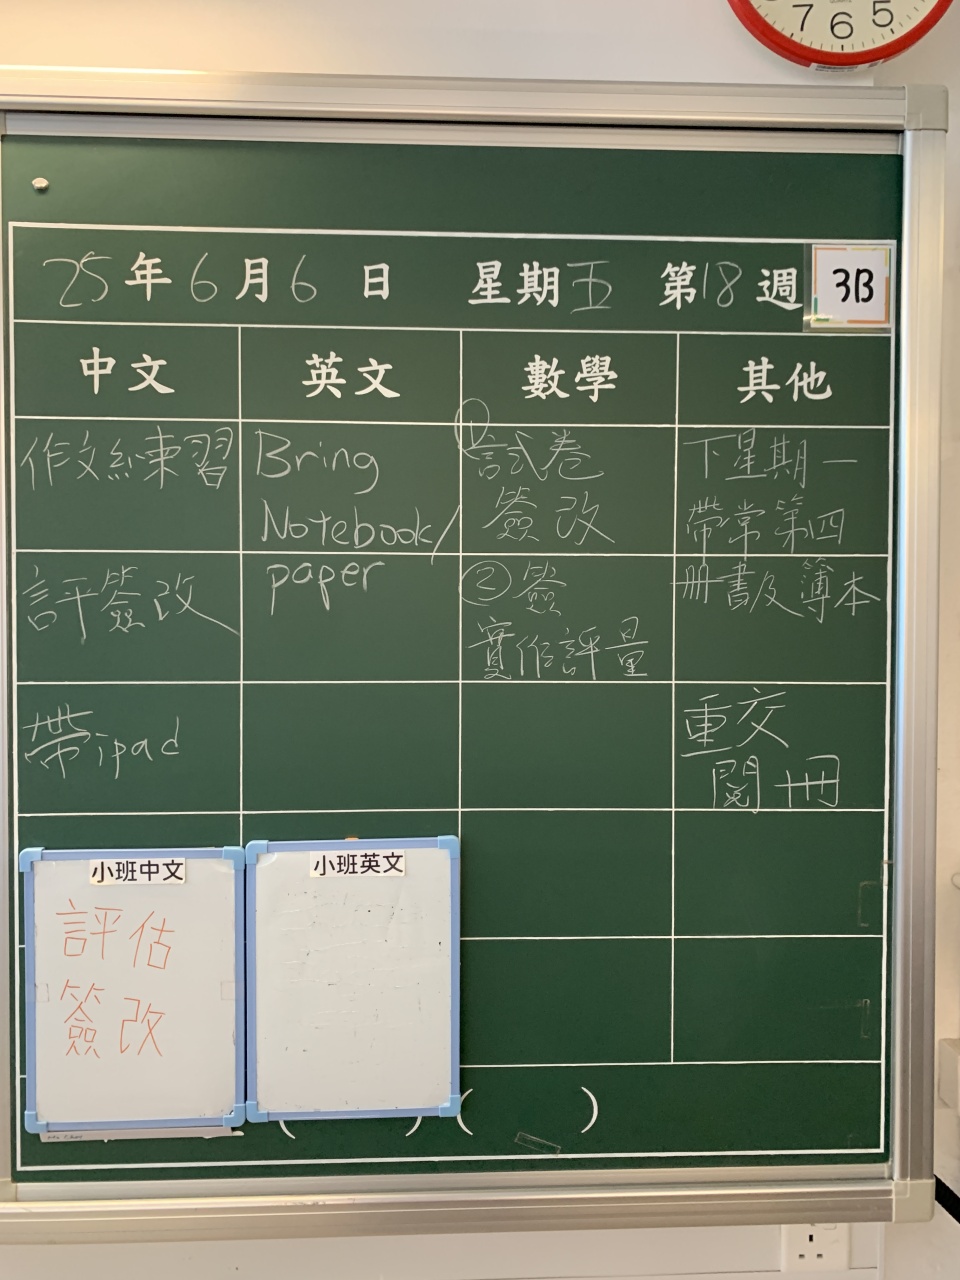 7 6 5
25年6月6日 星期五 第18週 3B
中文 英文 數學 其他
作文練習
評簽改
帶ipad
Bring
Notebook/
paper
①試卷
簽改
②簽
實作評量
下星期一
帶常第四
冊書及簿本
重交
閱冊
小班中文
評估
簽改
小班英文
( ) ( )